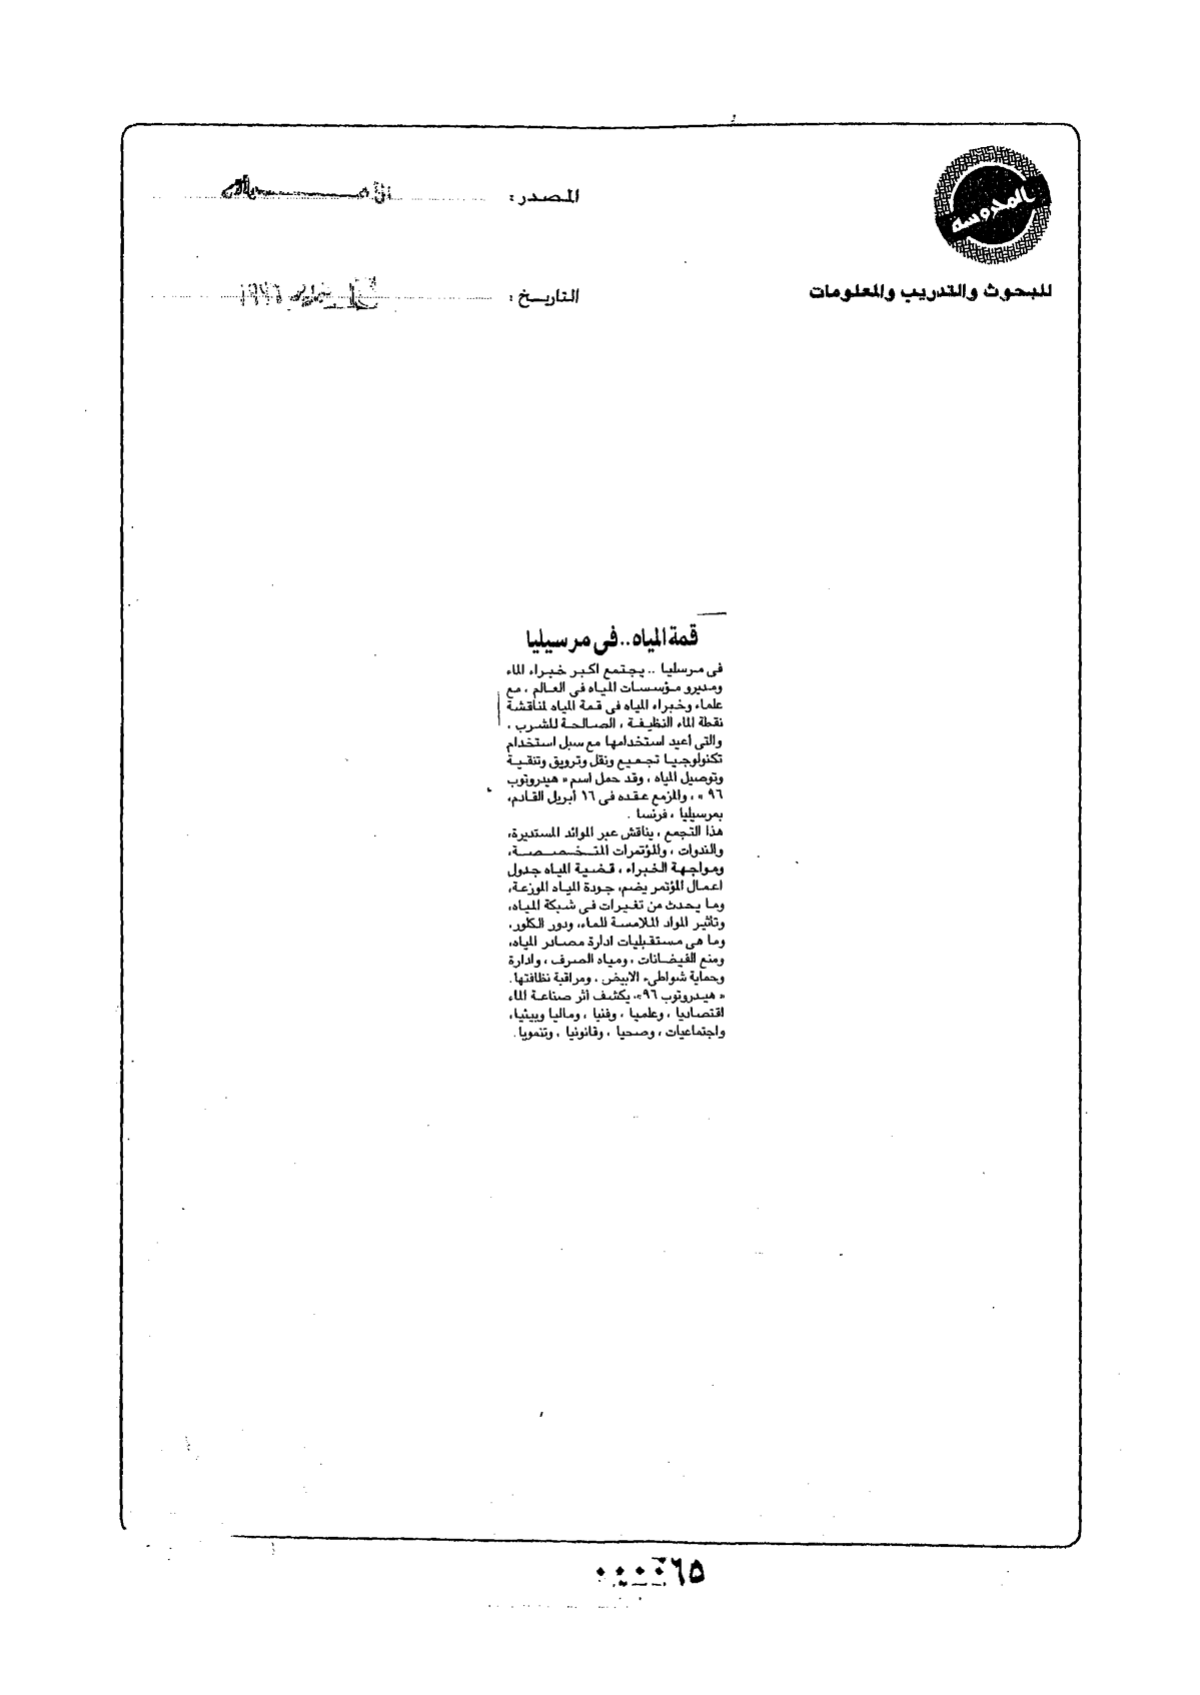 المحروسة
للبحوث والتدريب والمعلومات
المصدر:
التاريخ: ١٩٩٦
قمة المياه..فى مرسيليا
فى مرسليا .. يجتمع اكبر خبراء الماء
ومديرو مؤسسات المياه فى العالم ، مع
علماء وخبراء المياه فى قمة المياه لمناقشة
نقطة الماء النظيفة ، الصالحة للشرب ،
والتى أعيد استخدامها مع سبل استخدام
تكنولوجيا تجميع ونقل وترويق وتنقية
وتوصيل المياه ، وقد حمل اسم « هيدروتوب
٩٦ » ، والمزمع عقده فى ١٦ أبريل القادم،
بمرسيليا ، فرنسا .
هذا التجمع ، يناقش عبر الموائد المستديرة،
والندوات ، والمؤتمرات المتخصصة،
ومواجهة الخبراء ، قضية المياه جدول
اعمال المؤتمر يضم، جودة المياه الموزعة،
وما يحدث من تغيرات فى شبكة المياه،
وتاثير المواد الملامسة للماء، ودور الكلور،
وما هى مستقبليات ادارة مصادر المياه،
ومنع الفيضانات ، ومياه الصرف ، وادارة
وحماية شواطىء الابيض ، ومراقبة نظافتها.
« هيدروتوب ٩٦»، يكشف اثر صناعة الماء
اقتصاديا ، وعلميا ، وفنيا ، وماليا وبيئيا،
واجتماعيات ، وصحيا ، وقانونيا ، وتنمويا .
٠٠٠٠٦٥